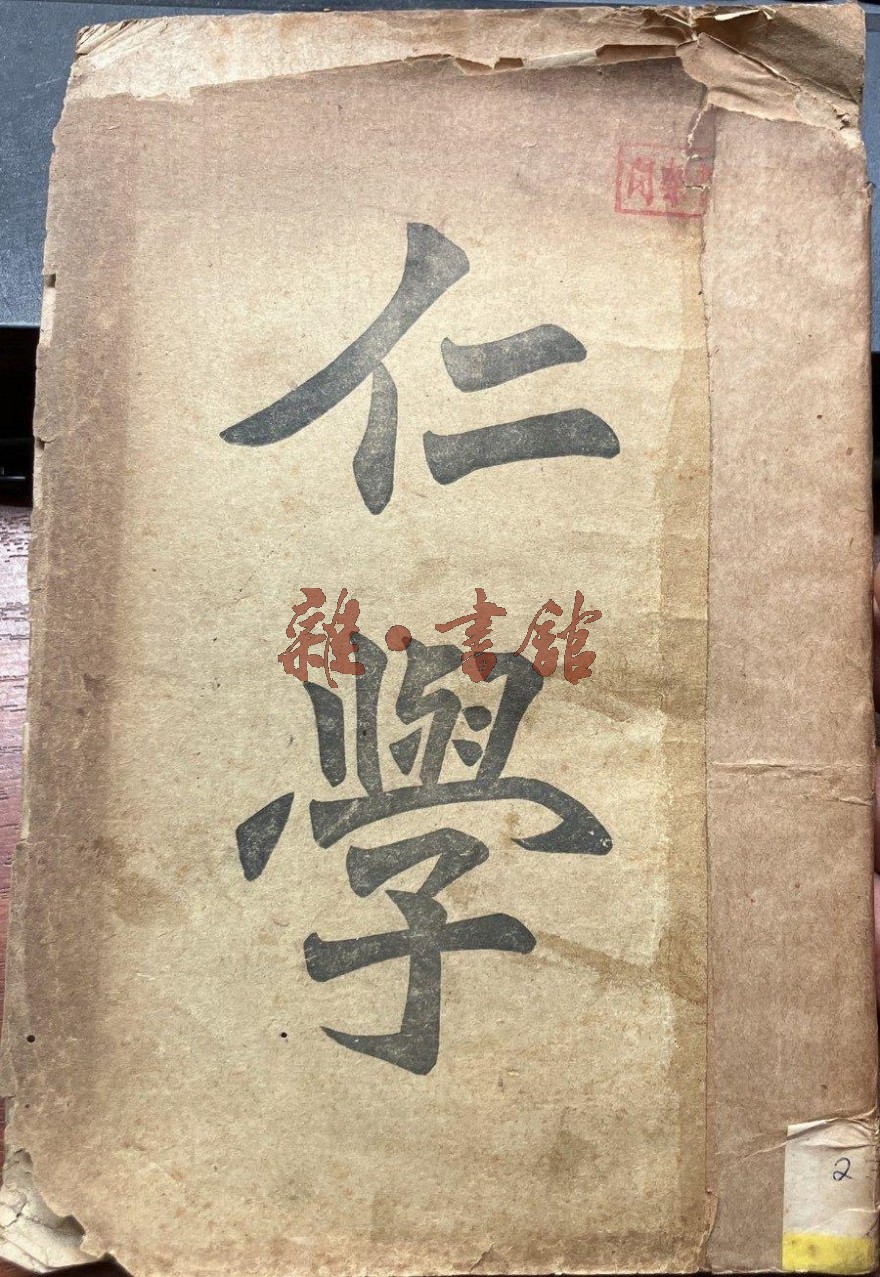 仁
學
雜·書館
2